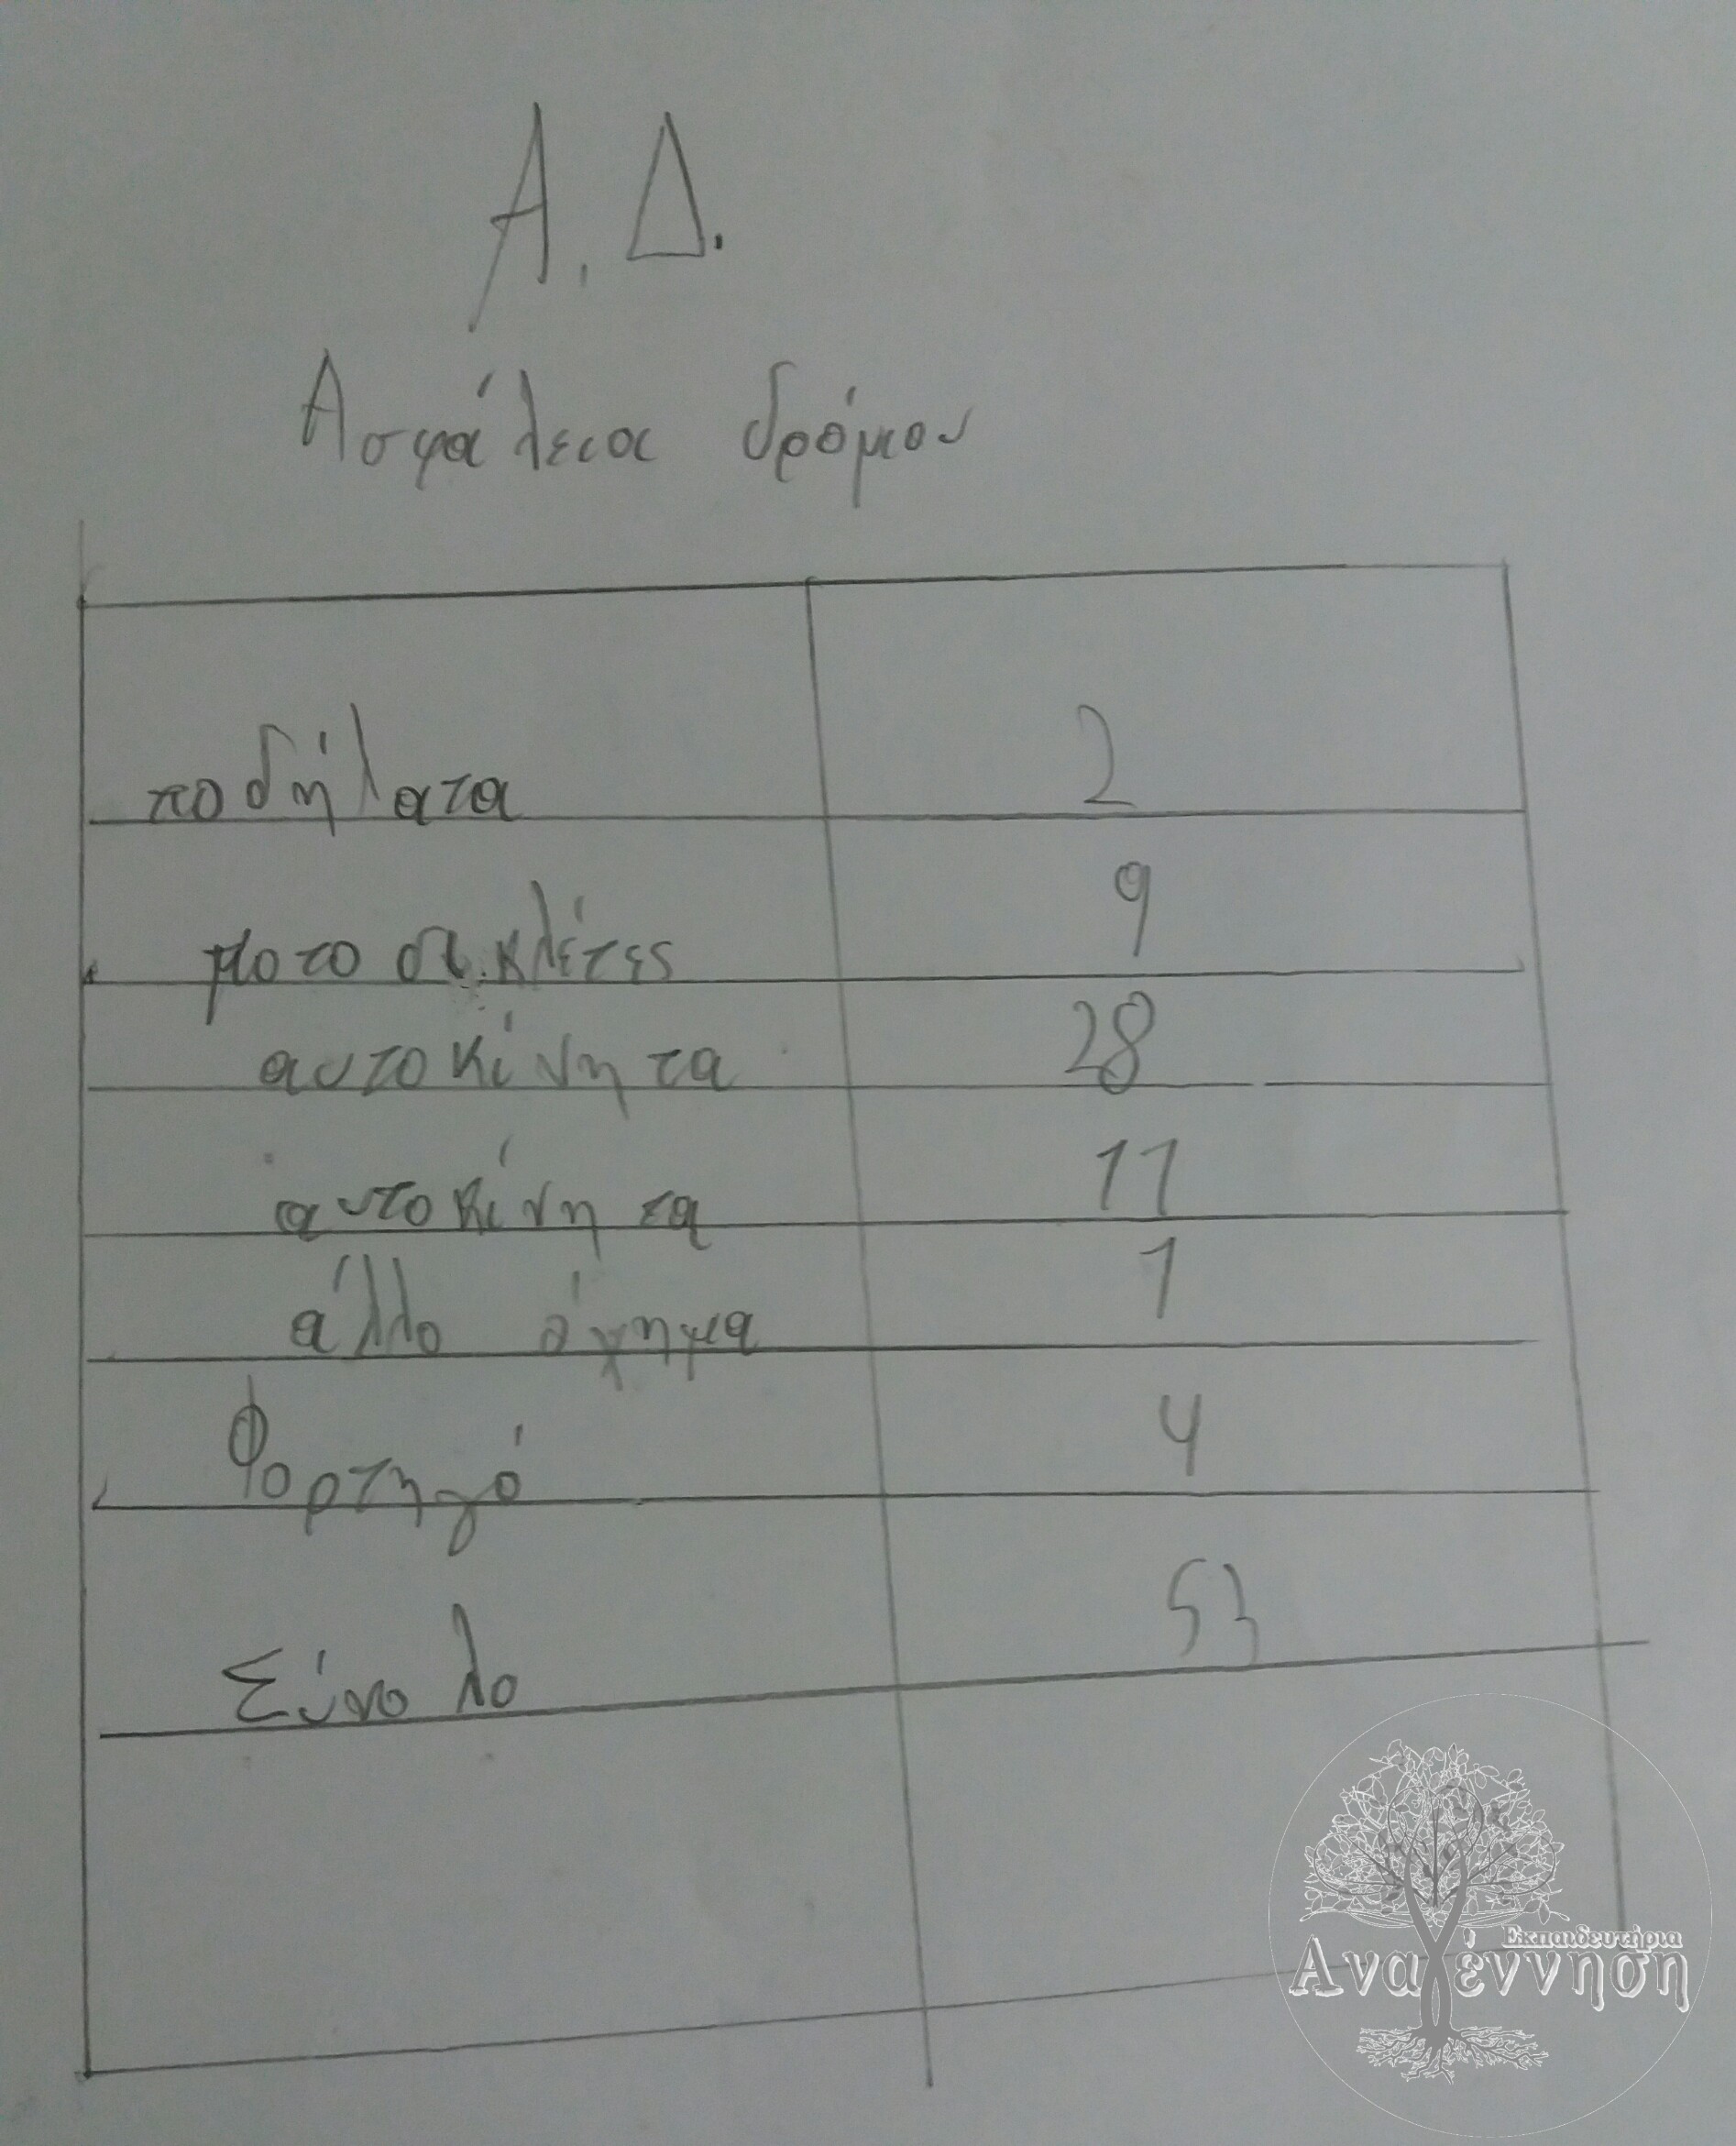 Α. Δ.
Ασφάλεια δρόμου
ποδήλατα 2
μοτοσυκλέτες 9
αυτοκίνητα 28
αυτοκίνητα 11
άλλο όχημα 1
Φορτηγό 4
Σύνολο 53
Εκπαιδευτήρια
Αναγέννηση